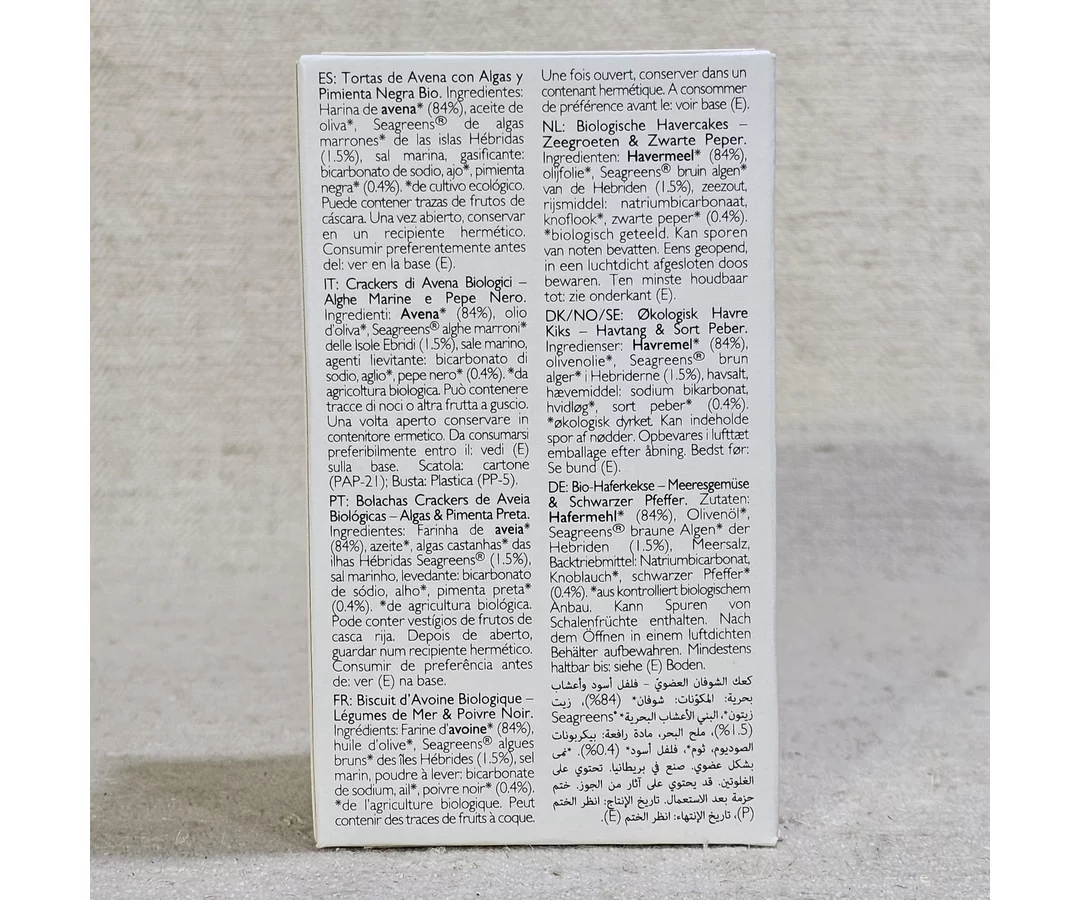 ES: Tortas de Avena con Algas y
Pimienta Negra Bio. Ingredientes:
Harina de avena* (84%), aceite de
oliva*, Seagreens® de algas
marrones* de las islas Hébridas
(1.5%), sal marina, gasificante:
bicarbonato de sodio, ajo*, pimienta
negra* (0.4%). *de cultivo ecológico.
Puede contener trazas de frutos de
cáscara. Una vez abierto, conservar
en un recipiente hermético.
Consumir preferentemente antes
del: ver en la base (E).
IT: Crackers di Avena Biologici –
Alghe Marine e Pepe Nero.
Ingredienti: Avena* (84%), olio
d'oliva*, Seagreens® alghe marroni*
delle Isole Ebridi (1.5%), sale marino,
agenti lievitante: bicarbonato di
sodio, aglio*, pepe nero* (0.4%). *da
agricoltura biologica. Può contenere
tracce di noci o altra frutta a guscio.
Una volta aperto conservare in
contenitore ermetico. Da consumarsi
preferibilmente entro il: vedi (E)
sulla base. Scatola: cartone
(PAP-21); Busta: Plastica (PP-5).
PT: Bolachas Crackers de Aveia
Biológicas – Algas & Pimenta Preta.
Ingredientes: Farinha de aveia*
(84%), azeite*, algas castanhas* das
ilhas Hébridas Seagreens® (1.5%),
sal marinho, levedante: bicarbonato
de sódio, alho*, pimenta preta*
(0.4%). *de agricultura biológica.
Pode conter vestígios de frutos de
casca rija. Depois de aberto,
guardar num recipiente hermético.
Consumir de preferência antes
de: ver (E) na base.
FR: Biscuit d'Avoine Biologique –
Légumes de Mer & Poivre Noir.
Ingrédients: Farine d'avoine* (84%),
huile d'olive*, Seagreens® algues
bruns* des îles Hébrides (1.5%), sel
marin, poudre à lever: bicarbonate
de sodium, ail*, poivre noir* (0.4%).
*de l'agriculture biologique. Peut
contenir des traces de fruits à coque.
Une fois ouvert, conserver dans un
contenant hermétique. A consommer
de préférence avant le: voir base (E).
NL: Biologische Havercakes –
Zeegroeten & Zwarte Peper.
Ingredienten: Havermeel* (84%),
olijfolie*, Seagreens® bruin algen*
van de Hebriden (1.5%), zeezout,
rijsmiddel: natriumbicarbonaat,
knoflook*, zwarte peper* (0.4%).
*biologisch geteeld. Kan sporen
van noten bevatten. Eens geopend,
in een luchtdicht afgesloten doos
bewaren. Ten minste houdbaar
tot: zie onderkant (E).
DK/NO/SE: Økologisk Havre
Kiks – Havtang & Sort Peber.
Ingredienser: Havremel* (84%),
olivenolie*, Seagreens® brun
alger* i Hebriderne (1.5%), havsalt,
hævemiddel: sodium bikarbonat,
hvidløg*, sort peber* (0.4%).
*økologisk dyrket. Kan indeholde
spor af nødder. Opbevares i lufttæt
emballage efter åbning. Bedst før:
Se bund (E).
DE: Bio-Haferkekse – Meeresgemüse
& Schwarzer Pfeffer. Zutaten:
Hafermehl* (84%), Olivenöl*,
Seagreens® braune Algen* der
Hebriden (1.5%), Meersalz,
Backtriebmittel: Natriumbicarbonat,
Knoblauch*, schwarzer Pfeffer*
(0.4%). *aus kontrolliert biologischem
Anbau. Kann Spuren von
Schalenfrüchte enthalten. Nach
dem Öffnen in einem luftdichten
Behälter aufbewahren. Mindestens
haltbar bis: siehe (E) Boden.
كعك الشوفان العضويّ – فلفل أسود وأعشاب
بحرية: المكوّنات: شوفان* (84%)، زيت
زيتون*، البني الأعشاب البحرية* Seagreens®
(1.5%)، ملح البحر، مادة رافعة: بيكربونات
الصوديوم، ثوم*، فلفل أسود* (0.4%). *نمى
بشكل عضوي. صنع في بريطانيا. تحتوي على
الغلوتين. قد يحتوي على آثار من الجوز. ختم
حزمة بعد الاستعمال. تاريخ الإنتاج: انظر الختم
(P)، تاريخ الإنتهاء: انظر الختم (E).